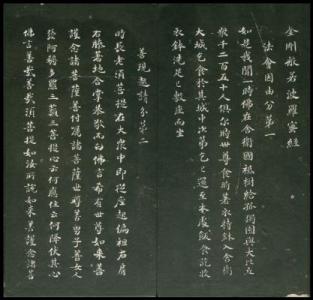 金剛般若波羅蜜經
法會因由分第一
如是我聞一時佛在舍衛國祇樹給孤獨園與大比丘
眾千二百五十人俱爾時世尊食時著衣持鉢入舍衛
大城乞食於其城中次第乞已還至本處飯食訖收
衣鉢洗足已敷座而坐
善現起請分第二
時長老須菩提在大眾中即從座起偏袒右肩
右膝著地合掌恭敬而白佛言希有世尊如來善
護念諸菩薩善付囑諸菩薩世尊善男子善女人
發阿耨多羅三藐三菩提心云何應住云何降伏其心
佛言善哉善哉須菩提如汝所說如來善護念諸菩